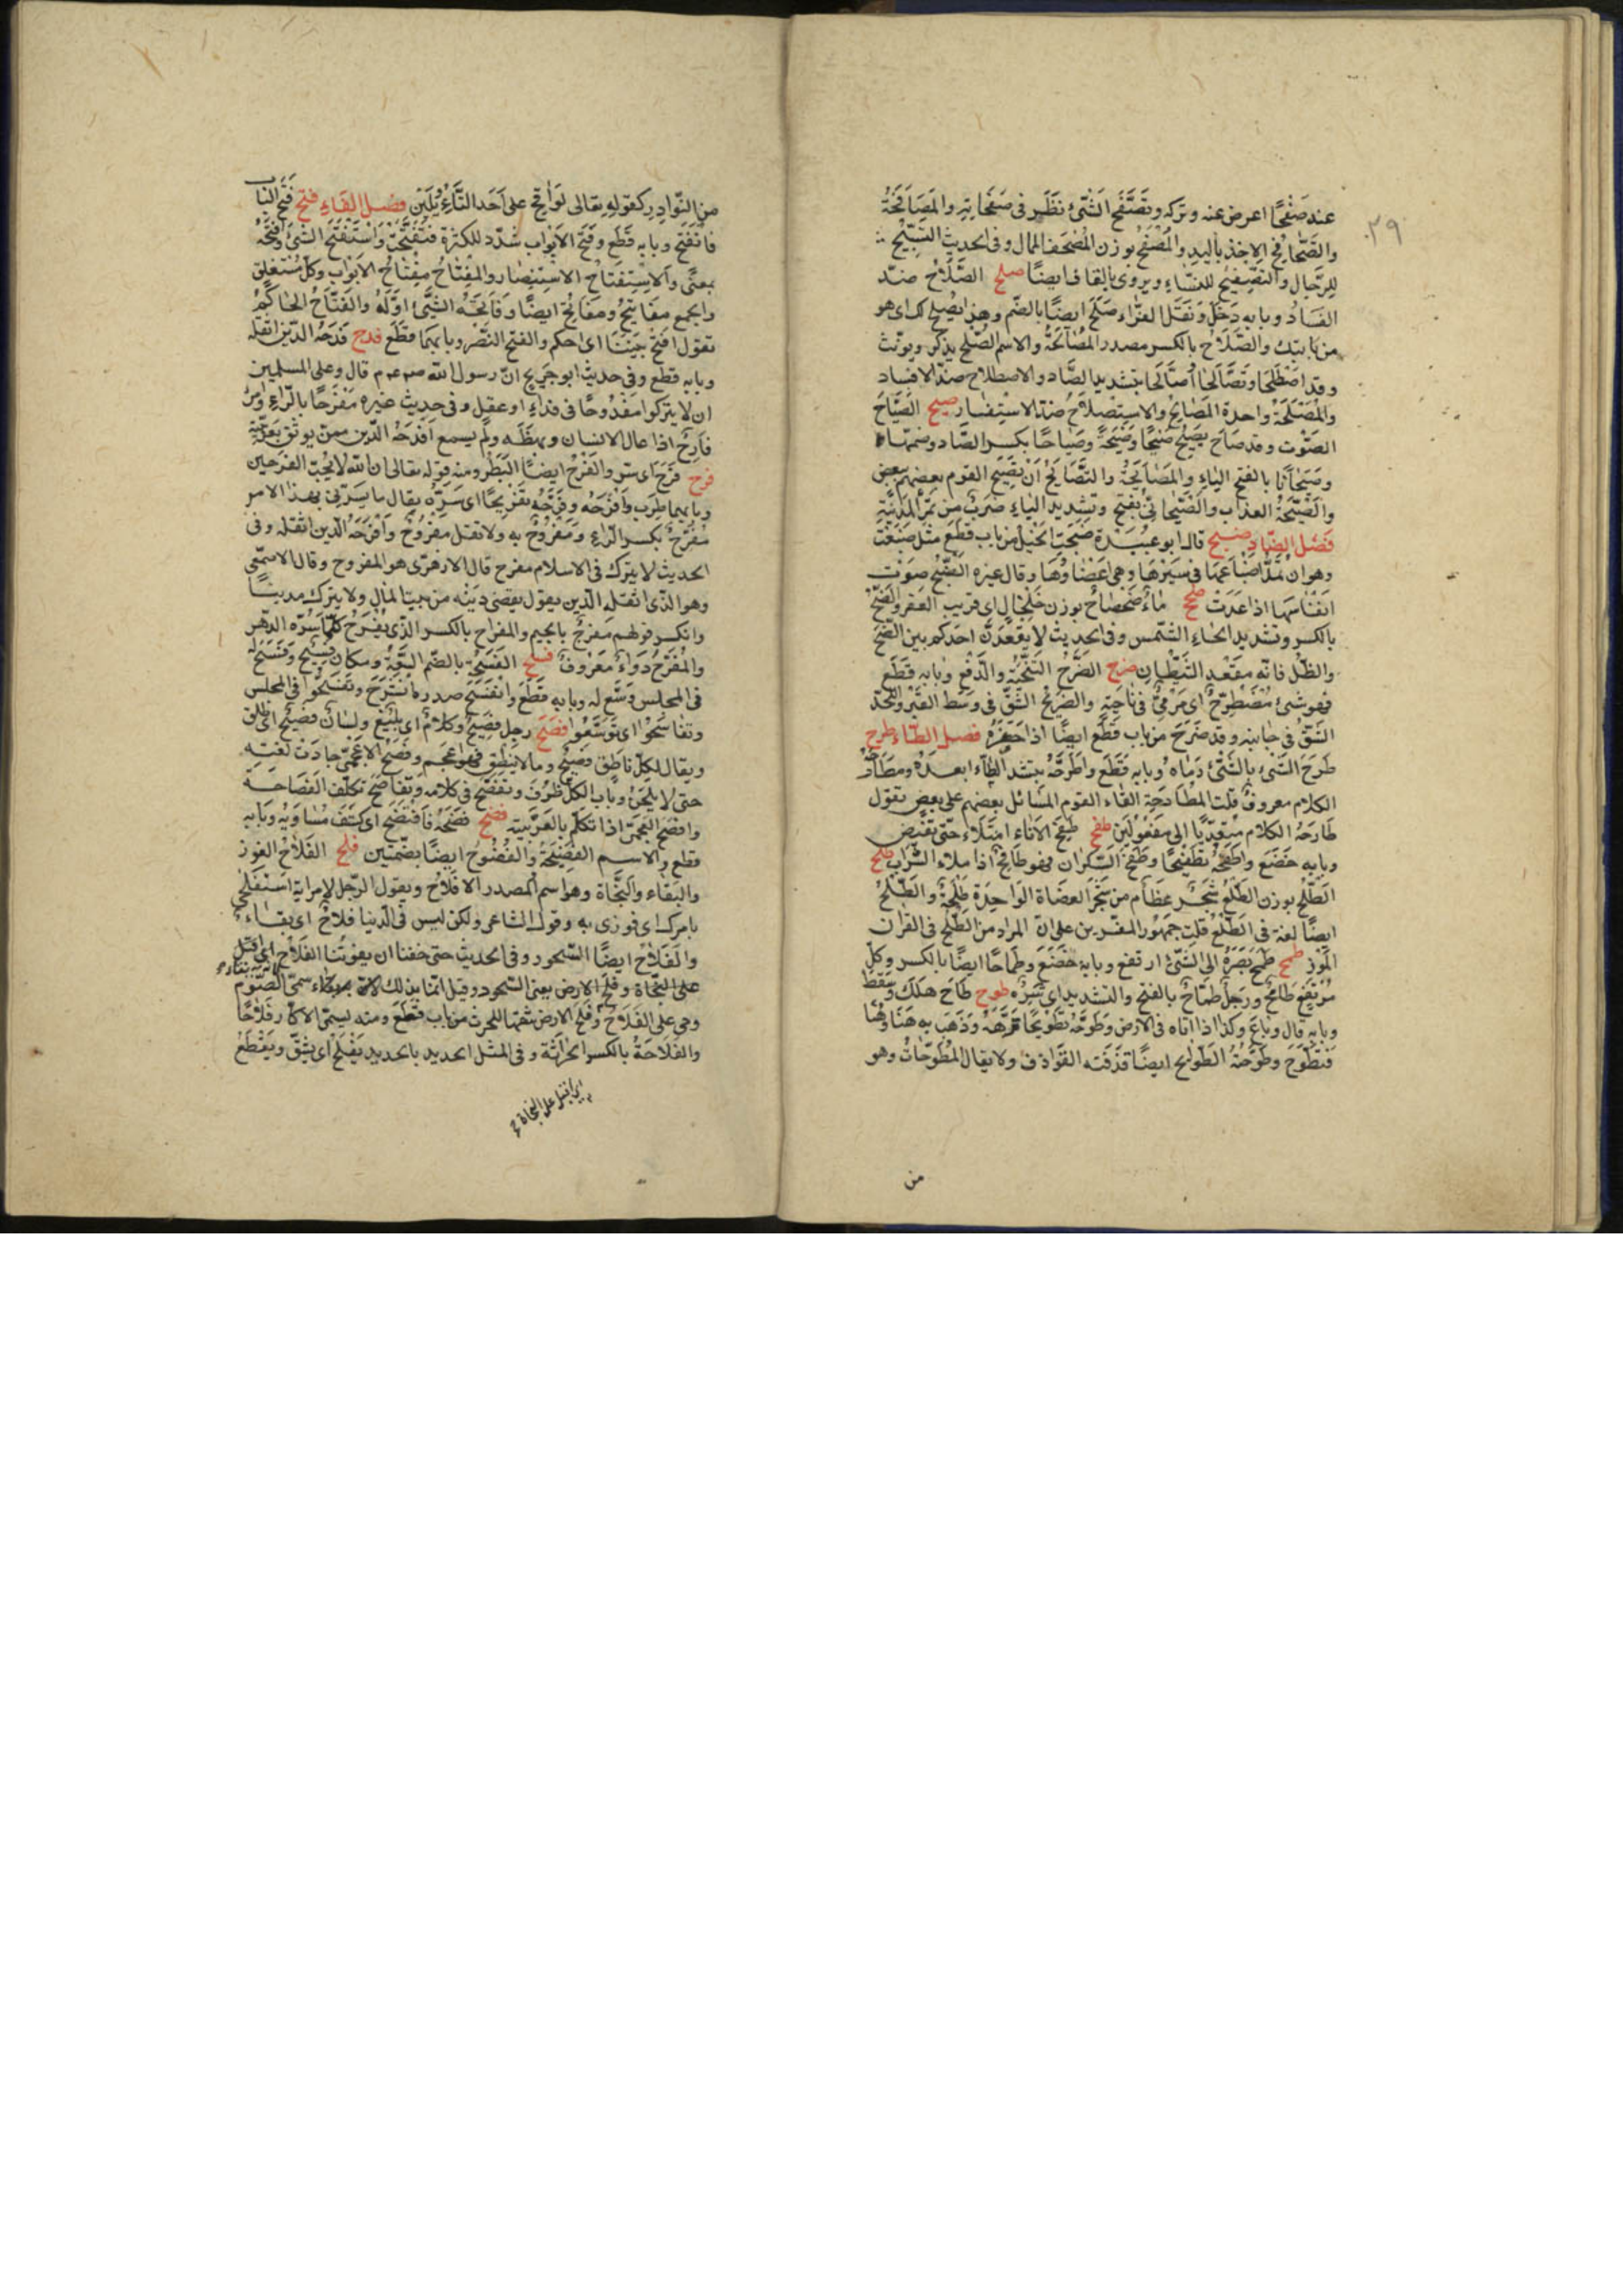 ٣٩
عند صَفْحًا اعرض عنه وتركه وتَصَفَّح الشَّئ نَظَر فى صَفَحَاتِهِ والمصَافَحَةُ
والتَّصَافُح الاخذ باليد والمُصْفَح بوزن المُصْحَف الممال وفى الحديث التَّسْبِيح
للرّجال والتّصْفِيح للنسّاء ويروى بالقاف ايضًا صلح الصَّلَاحُ ضدّ
الفسَادُ وبابه دَخَل وَنَقَل الفرّاء صَلُحَ ايضًا بالضّم وهذا يصْلح لك اى هو
من بابتك والصِّلَاح بالكسر مصدر المُصَالَحَة والاسم الصُّلح يذكر ويونّث
وقد اصْطَلَحَا وتَصَالَحَا واصَّالَحَا بتشديد الصَّاد والاصطلاح ضدّ الافساد
والمَصْلَحَة واحدة المصَالِحُ والاستصلاحُ ضدّ الاستفساد صيح الصّيَاح
الصَوْت وقد صَاحَ يصِيح صَيْحًا وصَيْحَةً وصِيَاحًا بكسر الصَّاد وضمّها
وصَيَحَانًا بالفتح الياء والمصَايَحَةُ والتَّصَايُح أن يصيح القوم بعضهم ببعض
والصَّيْحَةُ العذاب والصَّيْحَانِىُّ بفتح وتشديد الياء ضربٌ من تَمْر المدينَة
فصل الضاد ضبح قال ابو عُبَيْدَة ضَبَحَت الخيل من باب قَطَع مثل ضَبَعَت
وهو ان تمُدّ اضْبَاعَها فى سَيْرها وهى اعْضَاؤُها وقال غيره الضَّبْح صَوْت
انفاسها اذا عَدَتْ ضحح ماءٌ ضَحْضَاحٌ بوزن خَلْخَال اى قريب القعر والضّحّ
بالكسر وتشديد الحاء الشّمس وفى الحديث لا يقعُدَنّ احدكم بين الضّحّ
والظّل فانّه مقْعَد الشّيْطان ضرح الضَّرْح التنْحِيَة والدّفْع وبابه قَطَع
فهو شئ مُضْطَرَحٌ اى مَرْمِىٌّ فى نَاحِيَة والضَّرِيْح الشَّقّ فى وَسَط القَبْر واللّحْد
الشَّقُّ فى جَانبه وقد ضَرَح من باب قَطَع ايضًا اذا حَفَرَهُ فصل الطّاء طرح
طَرَحَ الشَّئَ بالشَّئ رَمَاه وبابه قَطَع واطَّرَحَهُ بتشد الطَّاء ابعدَهُ ومطَارَحَةُ
الكلام معروفٌ قلت المُطَارحَة القاء القوم المسَائل بعضهم على بعض تقول
طَارَحَهُ الكلام متعدّيًا الى مفْعُولَين طفح طفَحَ الاناء امتَلَاء حتّى تفيض
وبابه خَضَع واطْفَحَهُ تطْفِيحًا وطَفَحَ السّكران فهو طافِحٌ اذا ملاء الشَّرَاب طلح
الطّلْح بوزن الطَّلْعُ شَجَر عظَام من شَجَر العضَاة الوَاحِدَة طَلْحَةٌ والطّلْحُ
ايضًا لغة فى الطَّلْعُ قلت جمهُور المفسّرين على انّ المراد من الطّلْح فى القران
المَوْز طمح طَمَحَ بَصَرهُ الى الشّئ ارتفع وبابه خَضَع وطِمَاحًا ايضًا بالكسر وكلّ
مُرْتَفِعٍ طَامِحٌ ورَجُلٌ طَمّاحٌ بالفتح والتشديد اى شَرِهٌ طوح طَاحَ هَلَكَ وسَقَط
وبابه قال وبَاعَ وكذا اذا تاه فى الارض وطَوّحَهُ تطْوِيحًا تَوّهَهُ وذَهَب به هَنَا وهُنَا
فتَطَوَّحَ وطَوّحَتْهُ الطّوَائح ايضًا قذفته القَوَاذف ولا يقال المُطَوّحَاتُ وهو
من
من النّوادِر كقوله تعالى لَوَاقِحَ على اَحَد التَّأْوِيْلَيْنِ فصل الفاء فتح فَتَح البَاب
فانْفَتَح وبابه قَطَع وفَتَّحَ الابْوَاب شدّد للكثرة فتفَتَّحَتْ واسْتَفْتَح الشَّئَ وافْتَتَحَهُ
بمعنًى والاستِفتَاحُ الاستنصار والمِفْتَاحُ مِفْتَاحُ الابَوَاب وكل مُسْتغلق
والجمع مفَاتِيْحُ ومفَاتِحُ ايضًا وفَاتحَةُ الشَّئ اوّلهُ والفَتّاحُ الحَاكِمُ
تقول افتَحْ بَيْنَنَا اى احكم والفتح النَّصْر وبابهما قَطَع فدح فَدَحَهُ الدّين اثقله
وبابه قطع وفى حديث ابو جريج انّ رسول الله صم عم قال وعلى المسلمين
ان لا يتركوا مفْدُوحًا فى فداء او عقل وفى حديث غيره مَفْرَحًا بالرّاء وامْرٌ
فادِحٌ اذا عال الانسان وبهظَه ولم يسمع افدَحَهُ الدّين ممن يوثق بعربيّته
فرح فَرِحَ اى سرّ والفَرَح ايضًا البَطَر ومنه قوله تعالى ان الله لا يُحِبّ الفَرِحِين
وبابهما طَرِب وافْرَحَه وفَرّحَهُ تفْرِيحًا اى سَرّهُ يقال ما يسرّنى بهذا الامر
مُفْرِحٌ بكسر الرّاء ومَفْرُوحٌ به ولا تقل مَفْرُوحٌ وافْرَحَهُ الدّين اثقله وفى
الحديث لا يترك فى الاسلام مفرح قال الازهرىّ هو المفروح وقال الاصمعى
وهو الّذى اثقله الّدين يقول يقضى دَيْنه من بيت المال ولا يترك مديْنًا
وانكر قولهم مُفْرَجٌ بالجيم والمفرَاح بالكسر الّذى يفْرَحُ كلّما سَرّه الدهر
والمُفَرّحُ دَوَاءٌ مَعْرُوفٌ فسح الفُسْحَةُ بالضّم السّعَةُ ومكان فَسِيح وفَسَحَ له
فى المجلس وَسّع له وبابه قَطَع وانفَسَحَ صدره انشَرَحَ وتَفَسّحُوا فى المجلس
وتفَاسَحُوْا اى تَوَسّعُوا فصح رجل فصِيحٌ وكلامٌ اى بَلِيْغٌ ولسَانٌ فصِيحٌ اى طلق
ويقال لكلّ ناطق فصِيحٌ وما لا ينْطِق فهو اعجَم وفَصُحَ الاعْجَمىّ جادَتْ لغتِه
حتى لا يلحَنُ وباب الكل ظَرُفَ وتفَصّح فى كلامه وتفَاصَحَ تكلّف الفَصَاحَة
وافصَح العَجَمىّ اذا تكلّم بالعَرَبيّة فضح فَضَحَهُ فافتَضَح اى كشَفَ مسَاوِيَهُ وبَابه
قطع والاسم الفضِيْحَةُ والفُضُوْحُ ايضًا بضمّتين فلح الفَلَاحُ الفوز
والبَقاء والنّجَاة وهو اسم المصدر الافلَاحُ ويقول الرّجل لامراتهِ اسْتَفْلِحى
بامرك اى فوزى به وقول الشاعر ولكن ليس فى الدّنيا فلاحٌ اى بقَاءٌ
والفَلَاحُ ايضًا السّحور وفى الحديث حتى خفنا ان يفوتُنا الفَلَاح اى اقبل
على النّجَاة وفلح الارض يعنى السّحور وقيل انّما بذلك لانّ به بقاء سمّى الصّوم
وحى على الفَلَاحُ وفَلَح الارض شقّها للحرث من باب قَطَعَ ومنه يسمّى الاكّار فَلّاحًا
والفِلَاحَةُ بالكسر الحرَاثَة وفى المثل الحديد بالحديد يُفْلَح اى يشقّ ويقْطَعُ
اى اقبل على النجاة